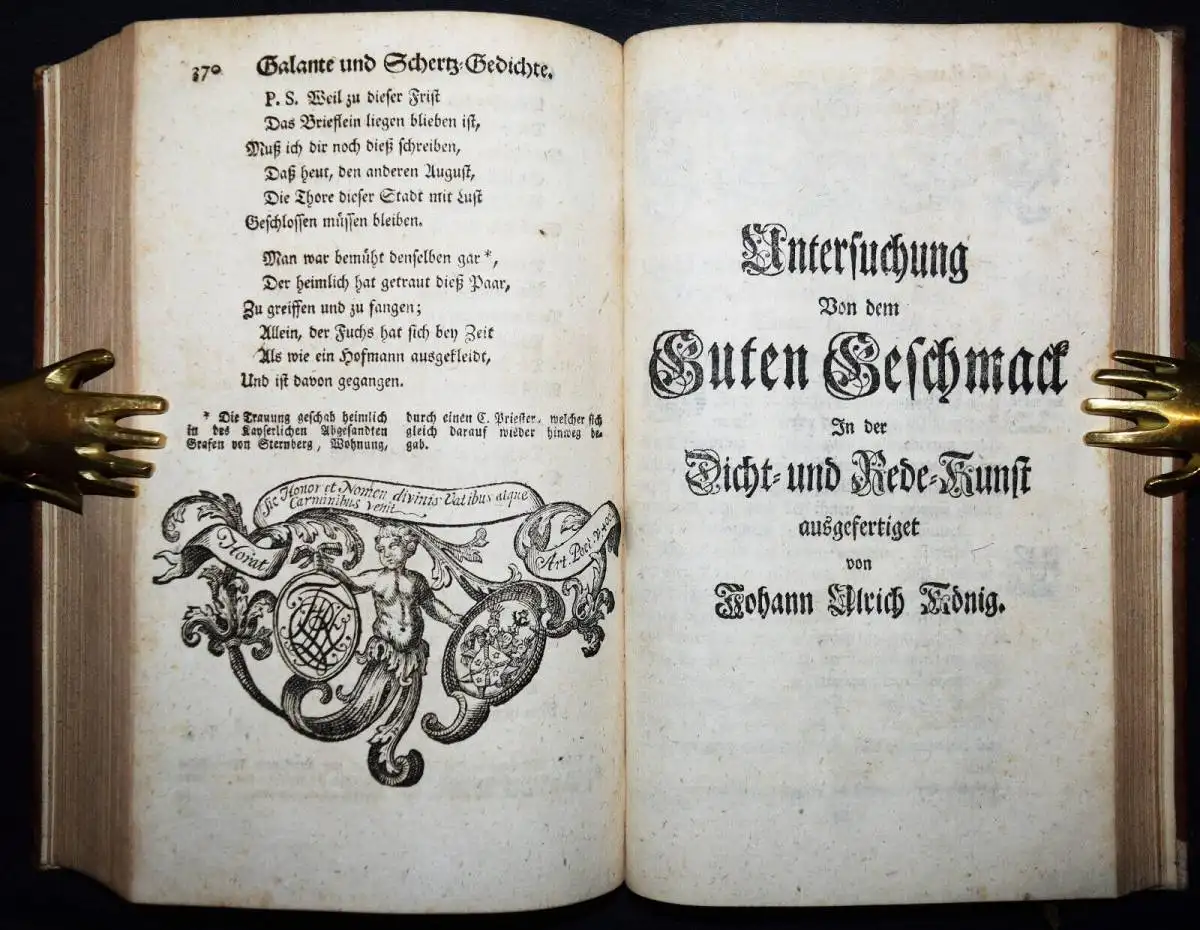 370 Galante und Schertz-Gedichte.
P. S. Weil zu dieser Frist
Das Brieflein liegen blieben ist,
Muß ich dir noch dieß schreiben,
Daß heut, den anderen August,
Die Thore dieser Stadt mit Lust
Geschlossen müssen bleiben.
Man war bemüht denselben gar *,
Der heimlich hat getraut dieß Paar,
Zu greiffen und zu fangen;
Allein, der Fuchs hat sich bey Zeit
Als wie ein Hofmann ausgekleidt,
Und ist davon gegangen.
* Die Trauung geschah heimlich
in des Kayserlichen Abgesandten
Grafen von Sternberg, Wohnung,
durch einen C. Priester, welcher sich
gleich darauf wieder hinweg be-
gab.
Sic Honor et Nomen divinis Vatibus atque
Carminibus venit
Horat.
Art. Poet. v. 400
Untersuchung
Von dem
Guten Geschmack
In der
Dicht- und Rede-Kunst
ausgefertiget
von
Johann Ulrich König.